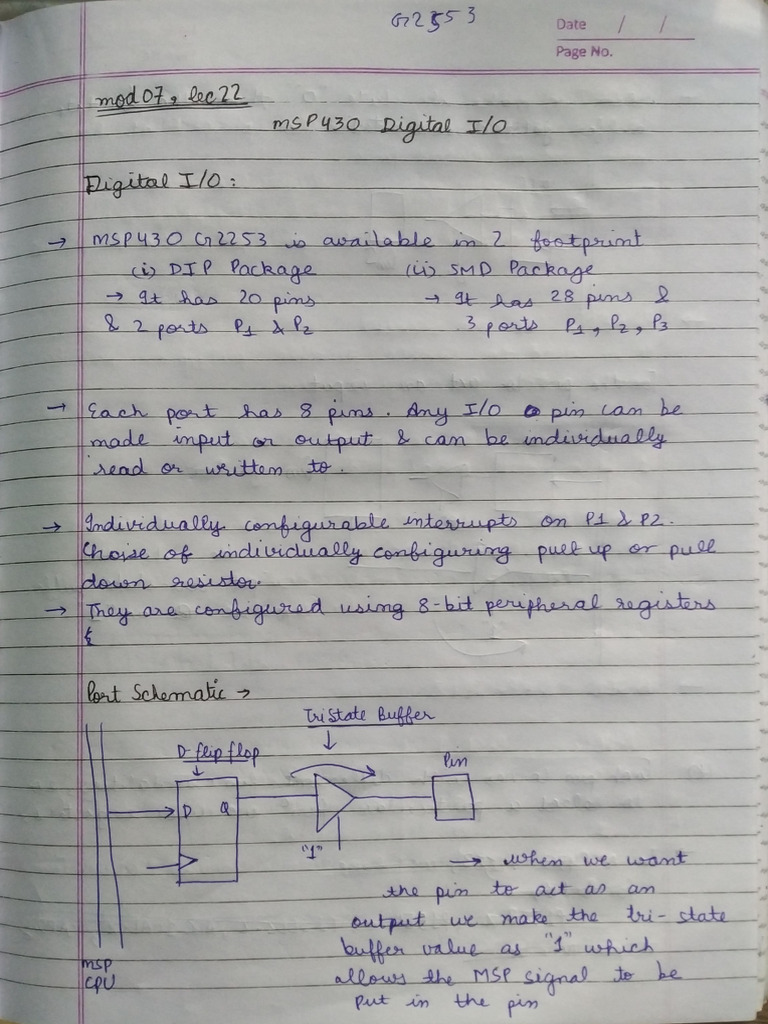 G2553
Date / /
Page No.
mod 07, lec 22
MSP430 Digital I/O
Digital I/O :
→ MSP430 G2253 is available in 2 footprint
(i) DIP Package (ii) SMD Package
→ It has 20 pins → It has 28 pins &
& 2 ports P1 & P2 3 ports P1, P2, P3
→ Each port has 8 pins. Any I/O pin can be
made input or output & can be individually
read or written to.
→ Individually configurable interrupts on P1 & P2.
Choise of individually configuring pull up or pull
down resistor.
→ They are configured using 8-bit peripheral registers
Port Schematic →
TriState Buffer
D-flip flop
Pin
D Q
"1"
→ when we want
the pin to act as an
output we make the tri-state
buffer value as "1" which
allows the MSP signal to be
put in the pin
MSP
CPU